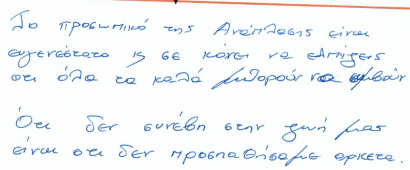 Το προσωπικό της Ανάπλασης είναι
ευγενέστατο κ σε κάνει να ελπίζεις
οτι όλα τα καλά μπορούν να συμβούν
Ότι δεν συνέβη στην ζωή μας
είναι οτι δεν προσπαθήσαμε αρκετα.